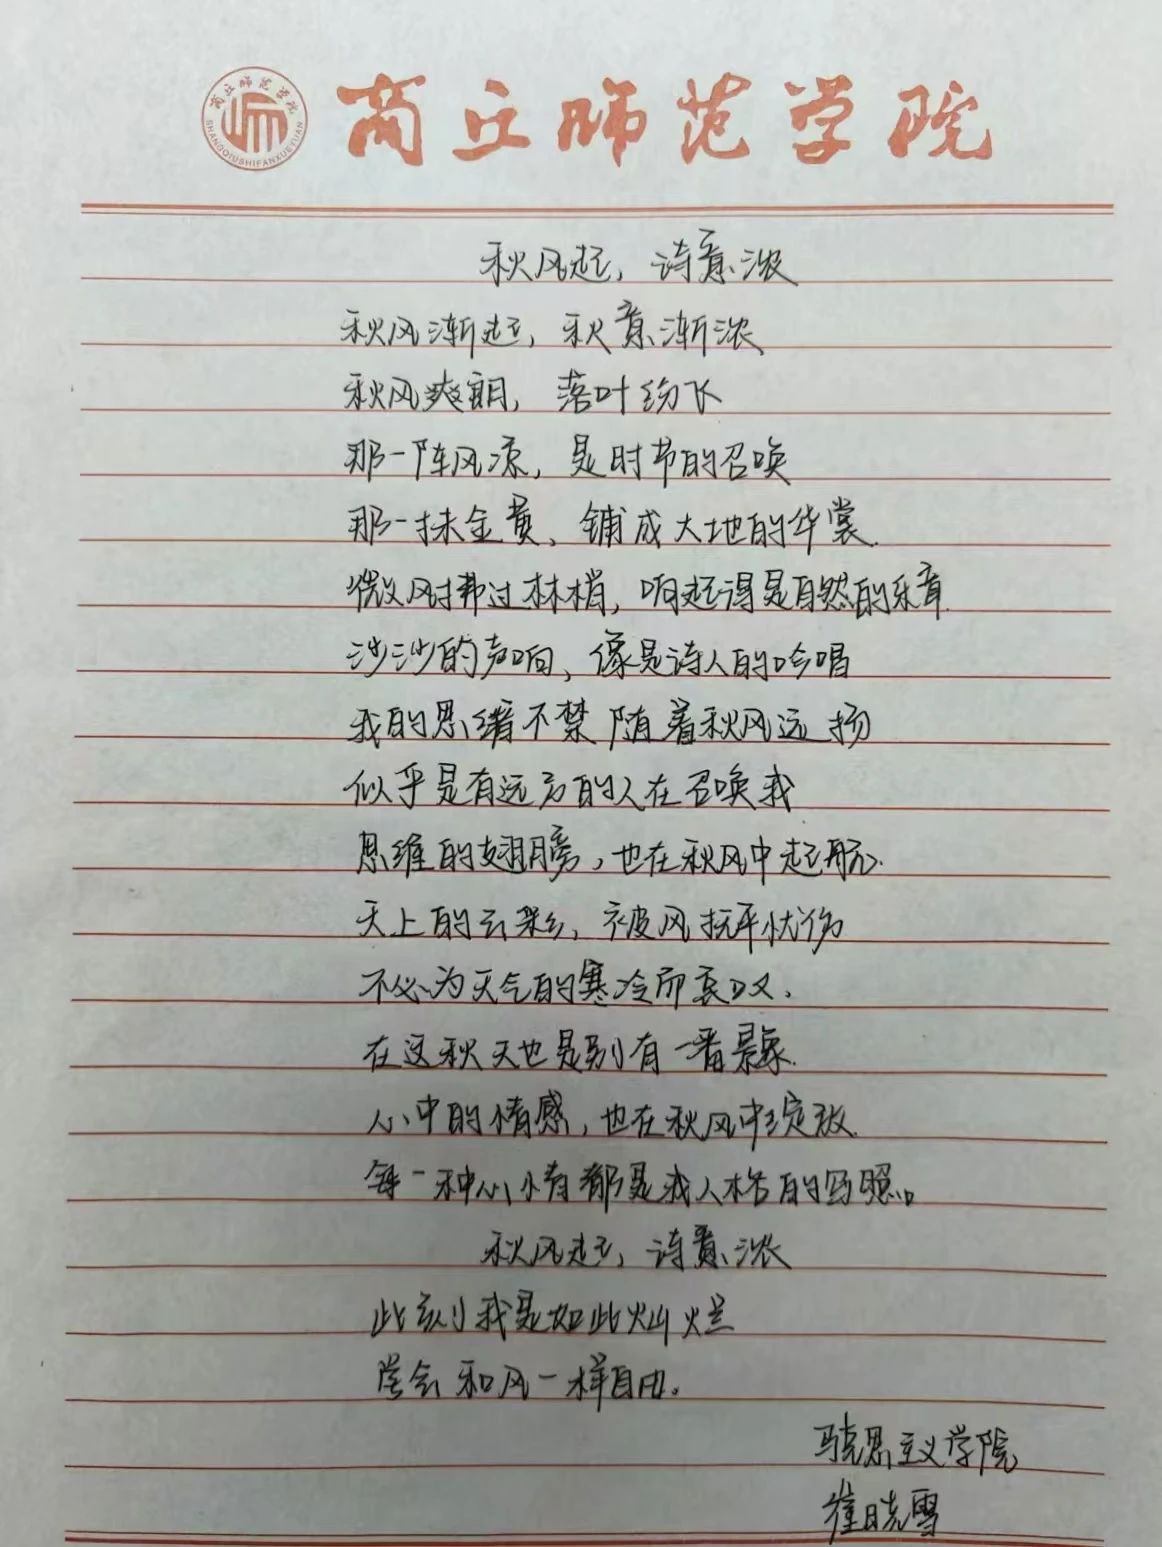 商丘师范学院
SHANGQIUSHIFANXUEYUAN
商丘师范学院
秋风起，诗意浓
秋风渐起，秋意渐浓
秋风爽朗，落叶纷飞
那一阵风凉，是时节的召唤
那一抹金黄、铺成大地的华裳.
微风拂过林梢，响起得是自然的乐章.
沙沙的声响、像是诗人的吟唱
我的思绪不禁随着秋风远扬
似乎是有远方的人在召唤我
思维的翅膀，也在秋风中起航.
天上的云彩，被风抚平忧伤
不必为天气的寒冷而哀叹、
在这秋天也是别有一番景象.
心中的情感，也在秋风中绽放.
每一种心情都是我人格的写照。
秋风起，诗意浓
此刻我是如此灿烂
学会和风一样自由。
马克思主义学院
崔晓雪